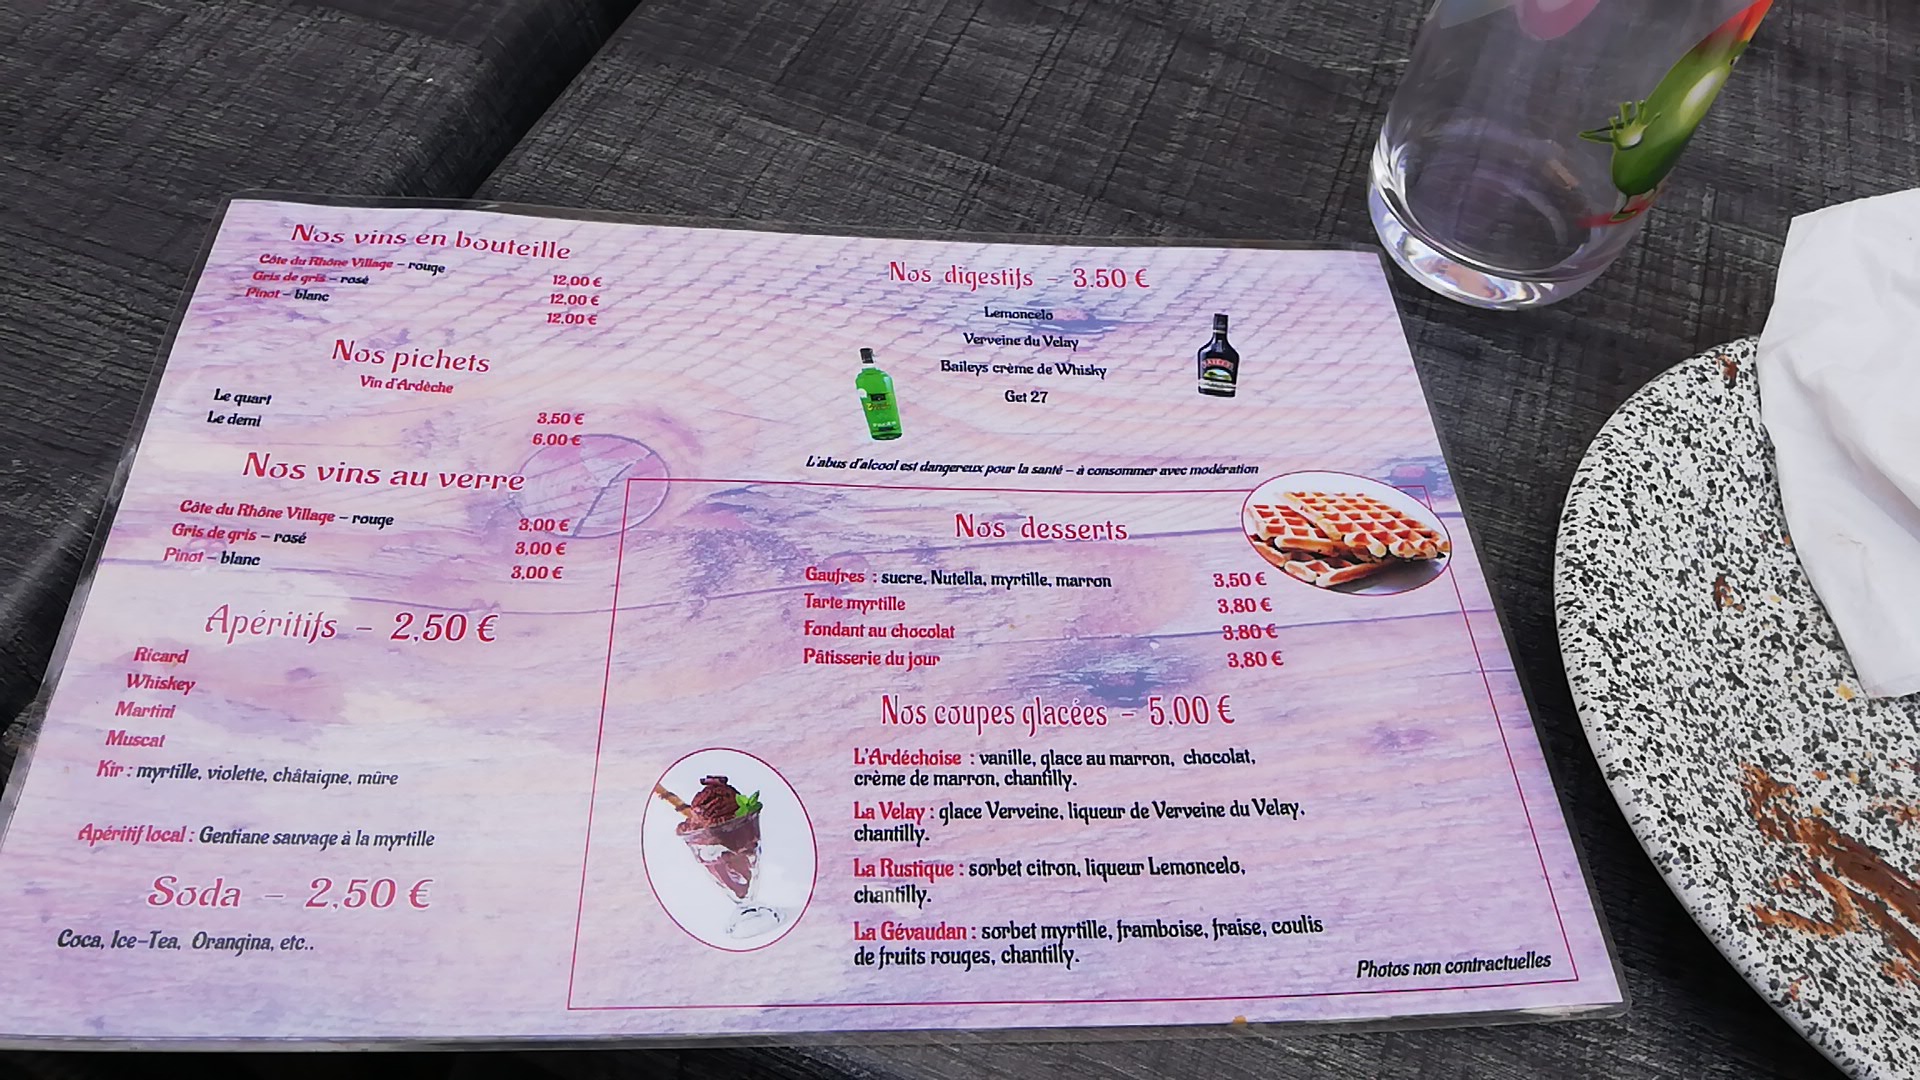 Nos vins en bouteille
Côte du Rhône Village – rouge 12,00 €
Gris de gris – rosé 12,00 €
Pinot – blanc 12,00 €
Nos pichets
Vin d'Ardèche
Le quart 3,50 €
Le demi 6.00 €
Nos vins au verre
Côte du Rhône Village – rouge 3,00 €
Gris de gris – rosé 3,00 €
Pinot – blanc 3,00 €
Apéritifs – 2,50 €
Ricard
Whiskey
Martini
Muscat
Kir : myrtille, violette, châtaigne, mûre
Apéritif local : Gentiane sauvage à la myrtille
Soda – 2,50 €
Coca, Ice-Tea, Orangina, etc..
Nos digestifs – 3.50 €
Lemoncelo
Verveine du Velay
Baileys crème de Whisky
Get 27
L'abus d'alcool est dangereux pour la santé – à consommer avec modération
Nos desserts
Gaufres : sucre, Nutella, myrtille, marron 3,50 €
Tarte myrtille 3,80 €
Fondant au chocolat 3,80 €
Pâtisserie du jour 3,80 €
Nos coupes glacées – 5.00 €
L'Ardéchoise : vanille, glace au marron, chocolat,
crème de marron, chantilly.
La Velay : glace Verveine, liqueur de Verveine du Velay,
chantilly.
La Rustique : sorbet citron, liqueur Lemoncelo,
chantilly.
La Gévaudan : sorbet myrtille, framboise, fraise, coulis
de fruits rouges, chantilly.
Photos non contractuelles